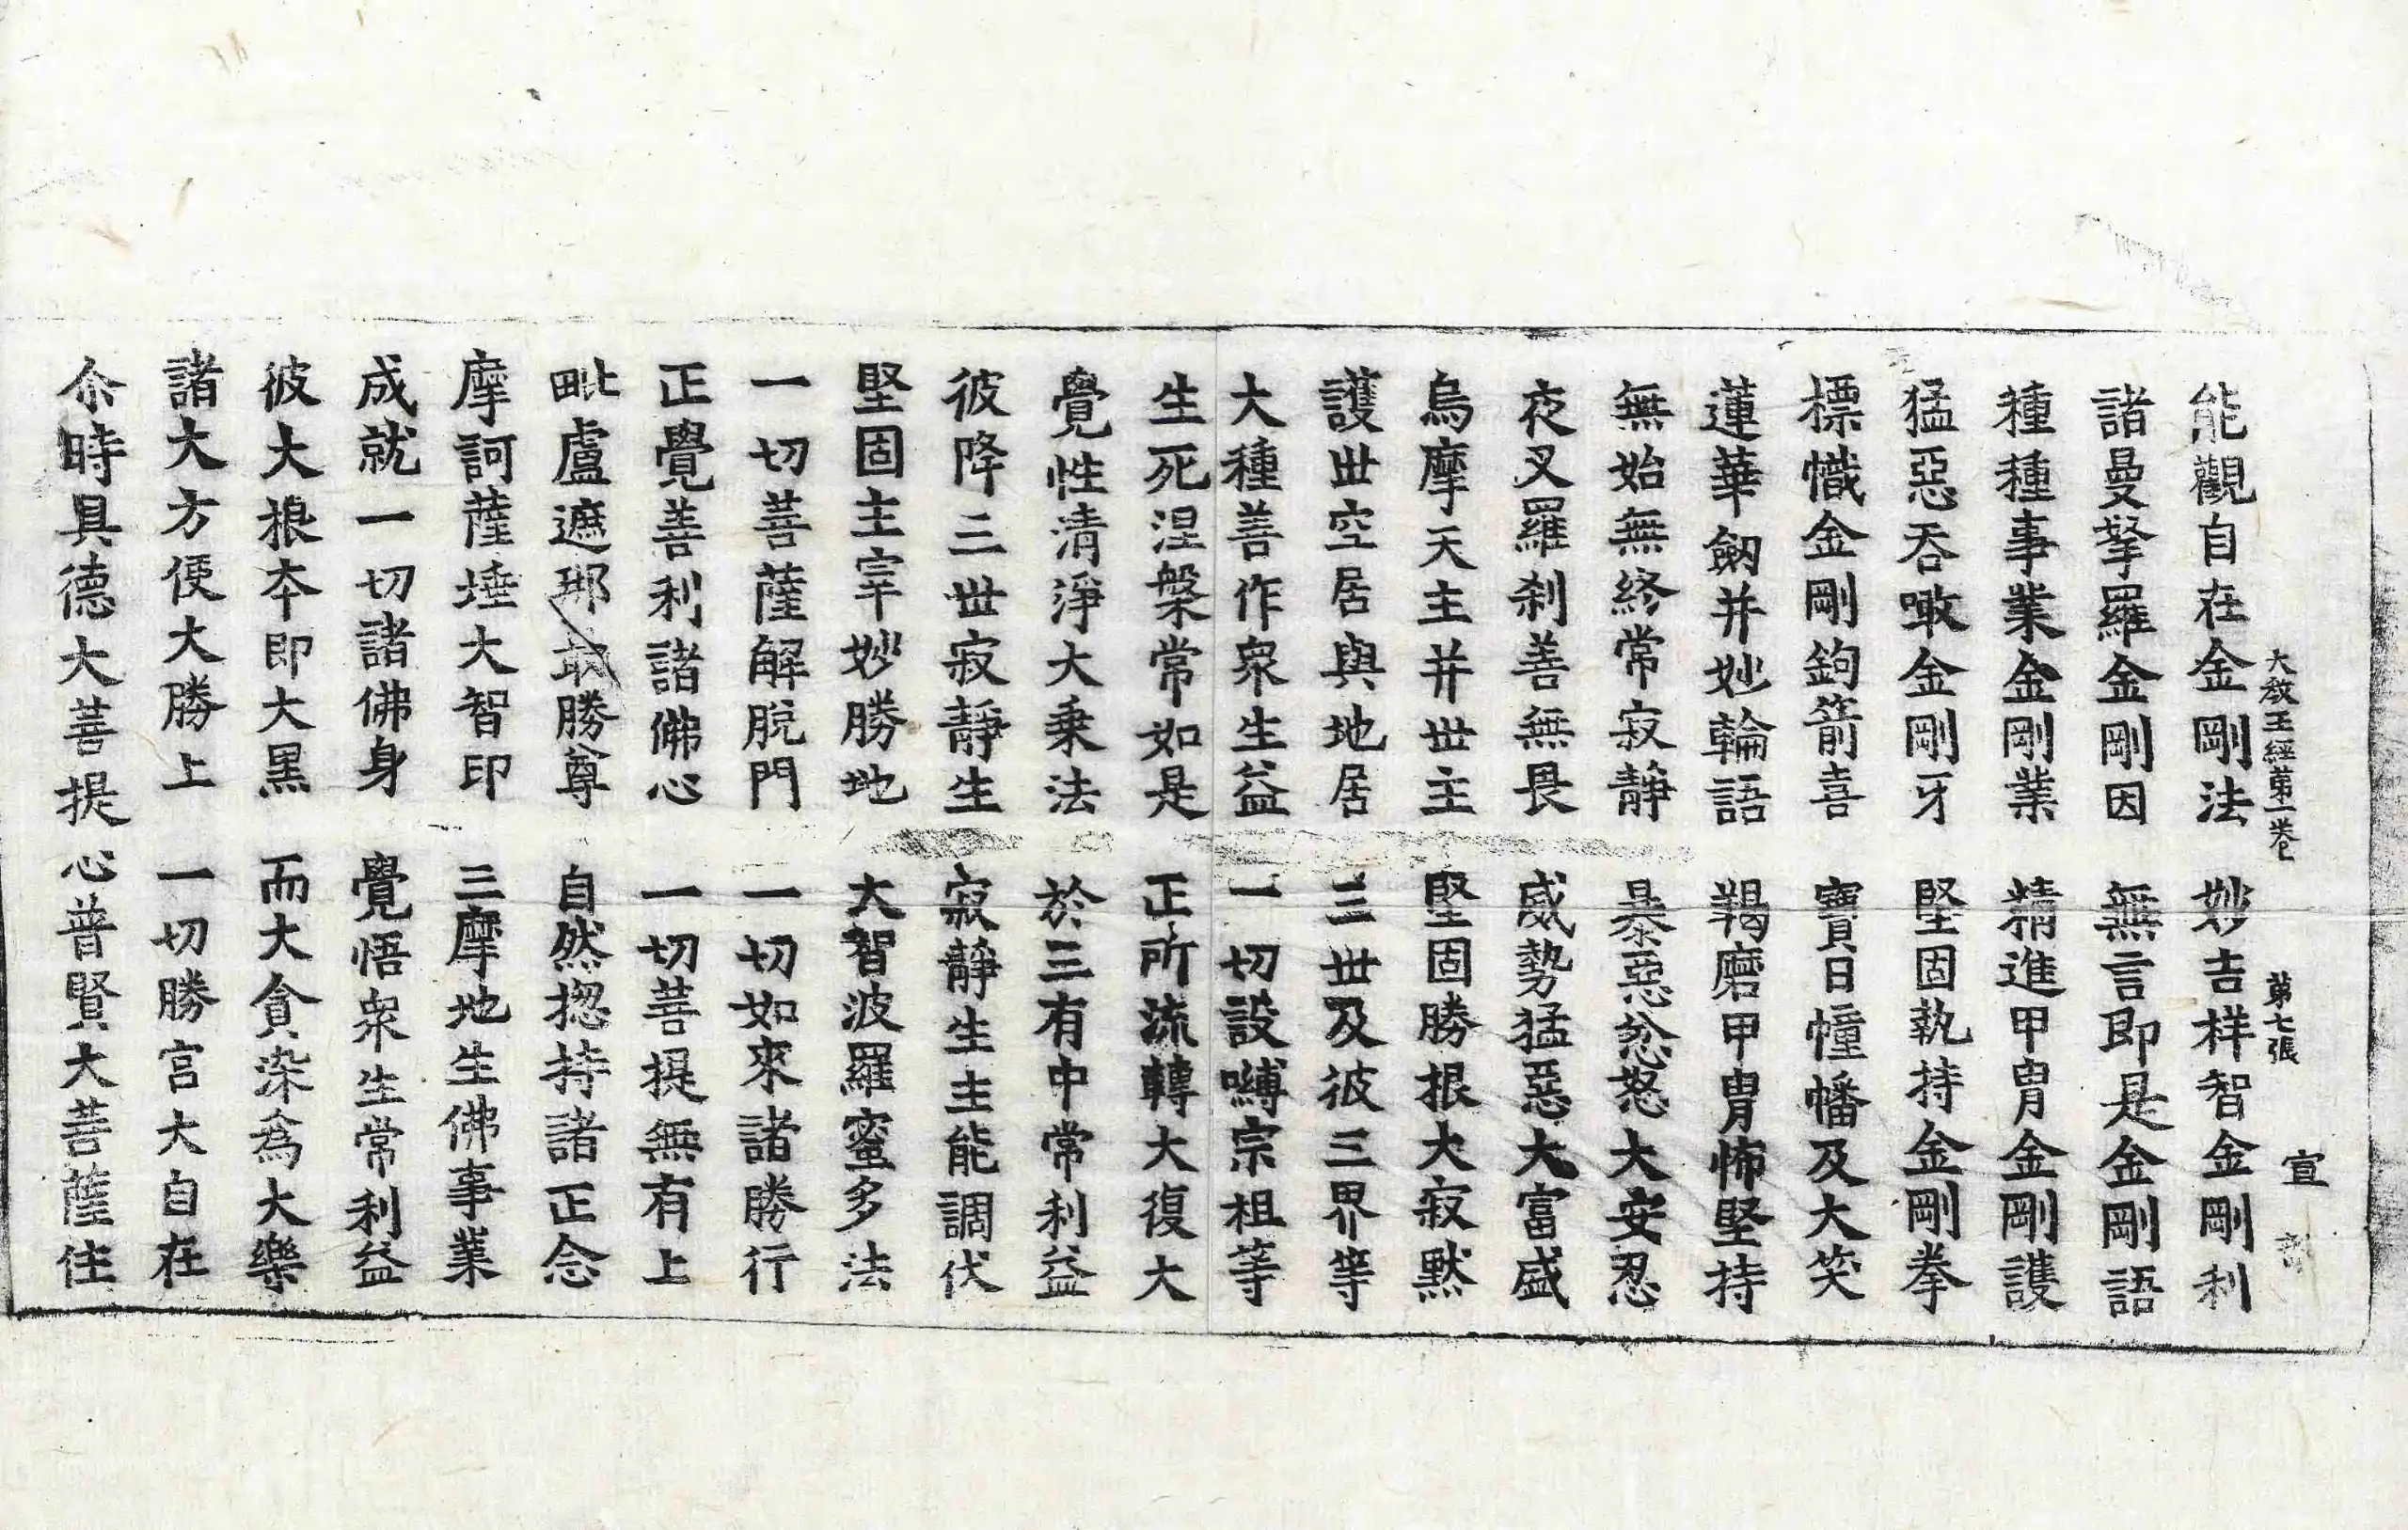 大教王經第一卷　第七張　宣
能觀自在金剛法　妙吉祥智金剛利
諸曼拏羅金剛因　無言即是金剛語
種種事業金剛業　精進甲冑金剛護
猛惡吞噉金剛牙　堅固執持金剛拳
標幟金剛鉤箭喜　寶日幢幡及大笑
蓮華劒并妙輪語　羯磨甲冑怖堅持
無始無終常寂靜　暴惡忿怒大安忍
夜叉羅刹善無畏　威勢猛惡大富盛
烏摩天主并世主　堅固勝根大寂默
護世空居與地居　三世及彼三界等
大種善作衆生益　一切設嚩宗祖等
生死涅槃常如是　正所流轉大復大
覺性清淨大乗法　於三有中常利益
彼降三世寂靜生　寂靜生主能調伏
堅固主宰妙勝地　大智波羅蜜多法
一切菩薩解脫門　一切如來諸勝行
正覺善利諸佛心　一切菩提無有上
毗盧遮那㝡勝尊　自然揔持諸正念
摩訶薩埵大智印　三摩地生佛事業
成就一切諸佛身　覺悟衆生常利益
彼大根本即大黑　而大貪染為大樂
諸大方便大勝上　一切勝宮大自在
尒時具德大菩提心普賢大菩薩住